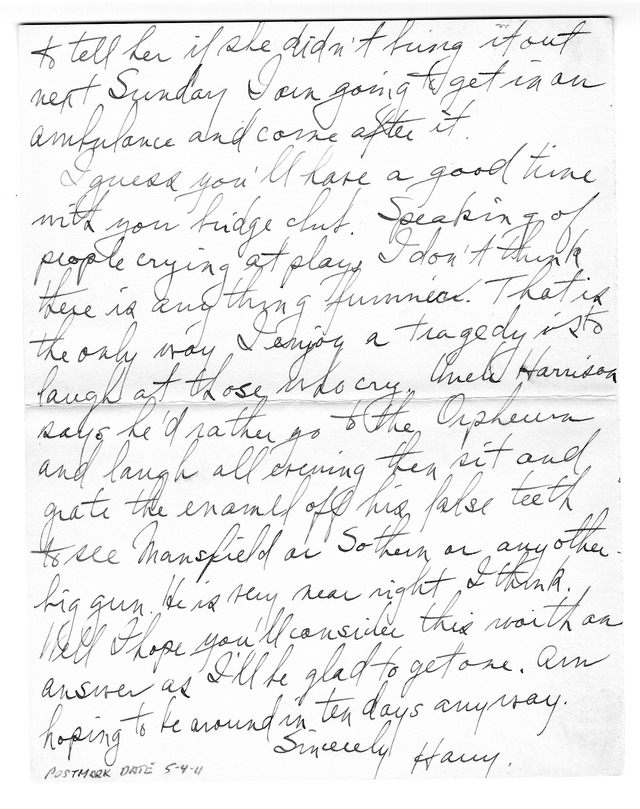 to tell her if she didn't bring it out
next Sunday I am going to get in an
ambulance and come after it.
I guess you'll have a good time
with your bridge club. Speaking of
people crying at plays I don't think
there is anything funnier. That is
the only way I enjoy a tragedy is to
laugh at those who cry. Uncle Harrison
says he'd rather go to the Orpheum
and laugh all evening then sit and
grate the enamel off his false teeth
to see Mansfield or Sothern or any other
big gun. He is very near right I think.
Well I hope you'll consider this worth an
answer as I'll be glad to get one. Am
hoping to be around in ten days anyway.
Sincerely Harry.
POSTMARK DATE 5-4-11